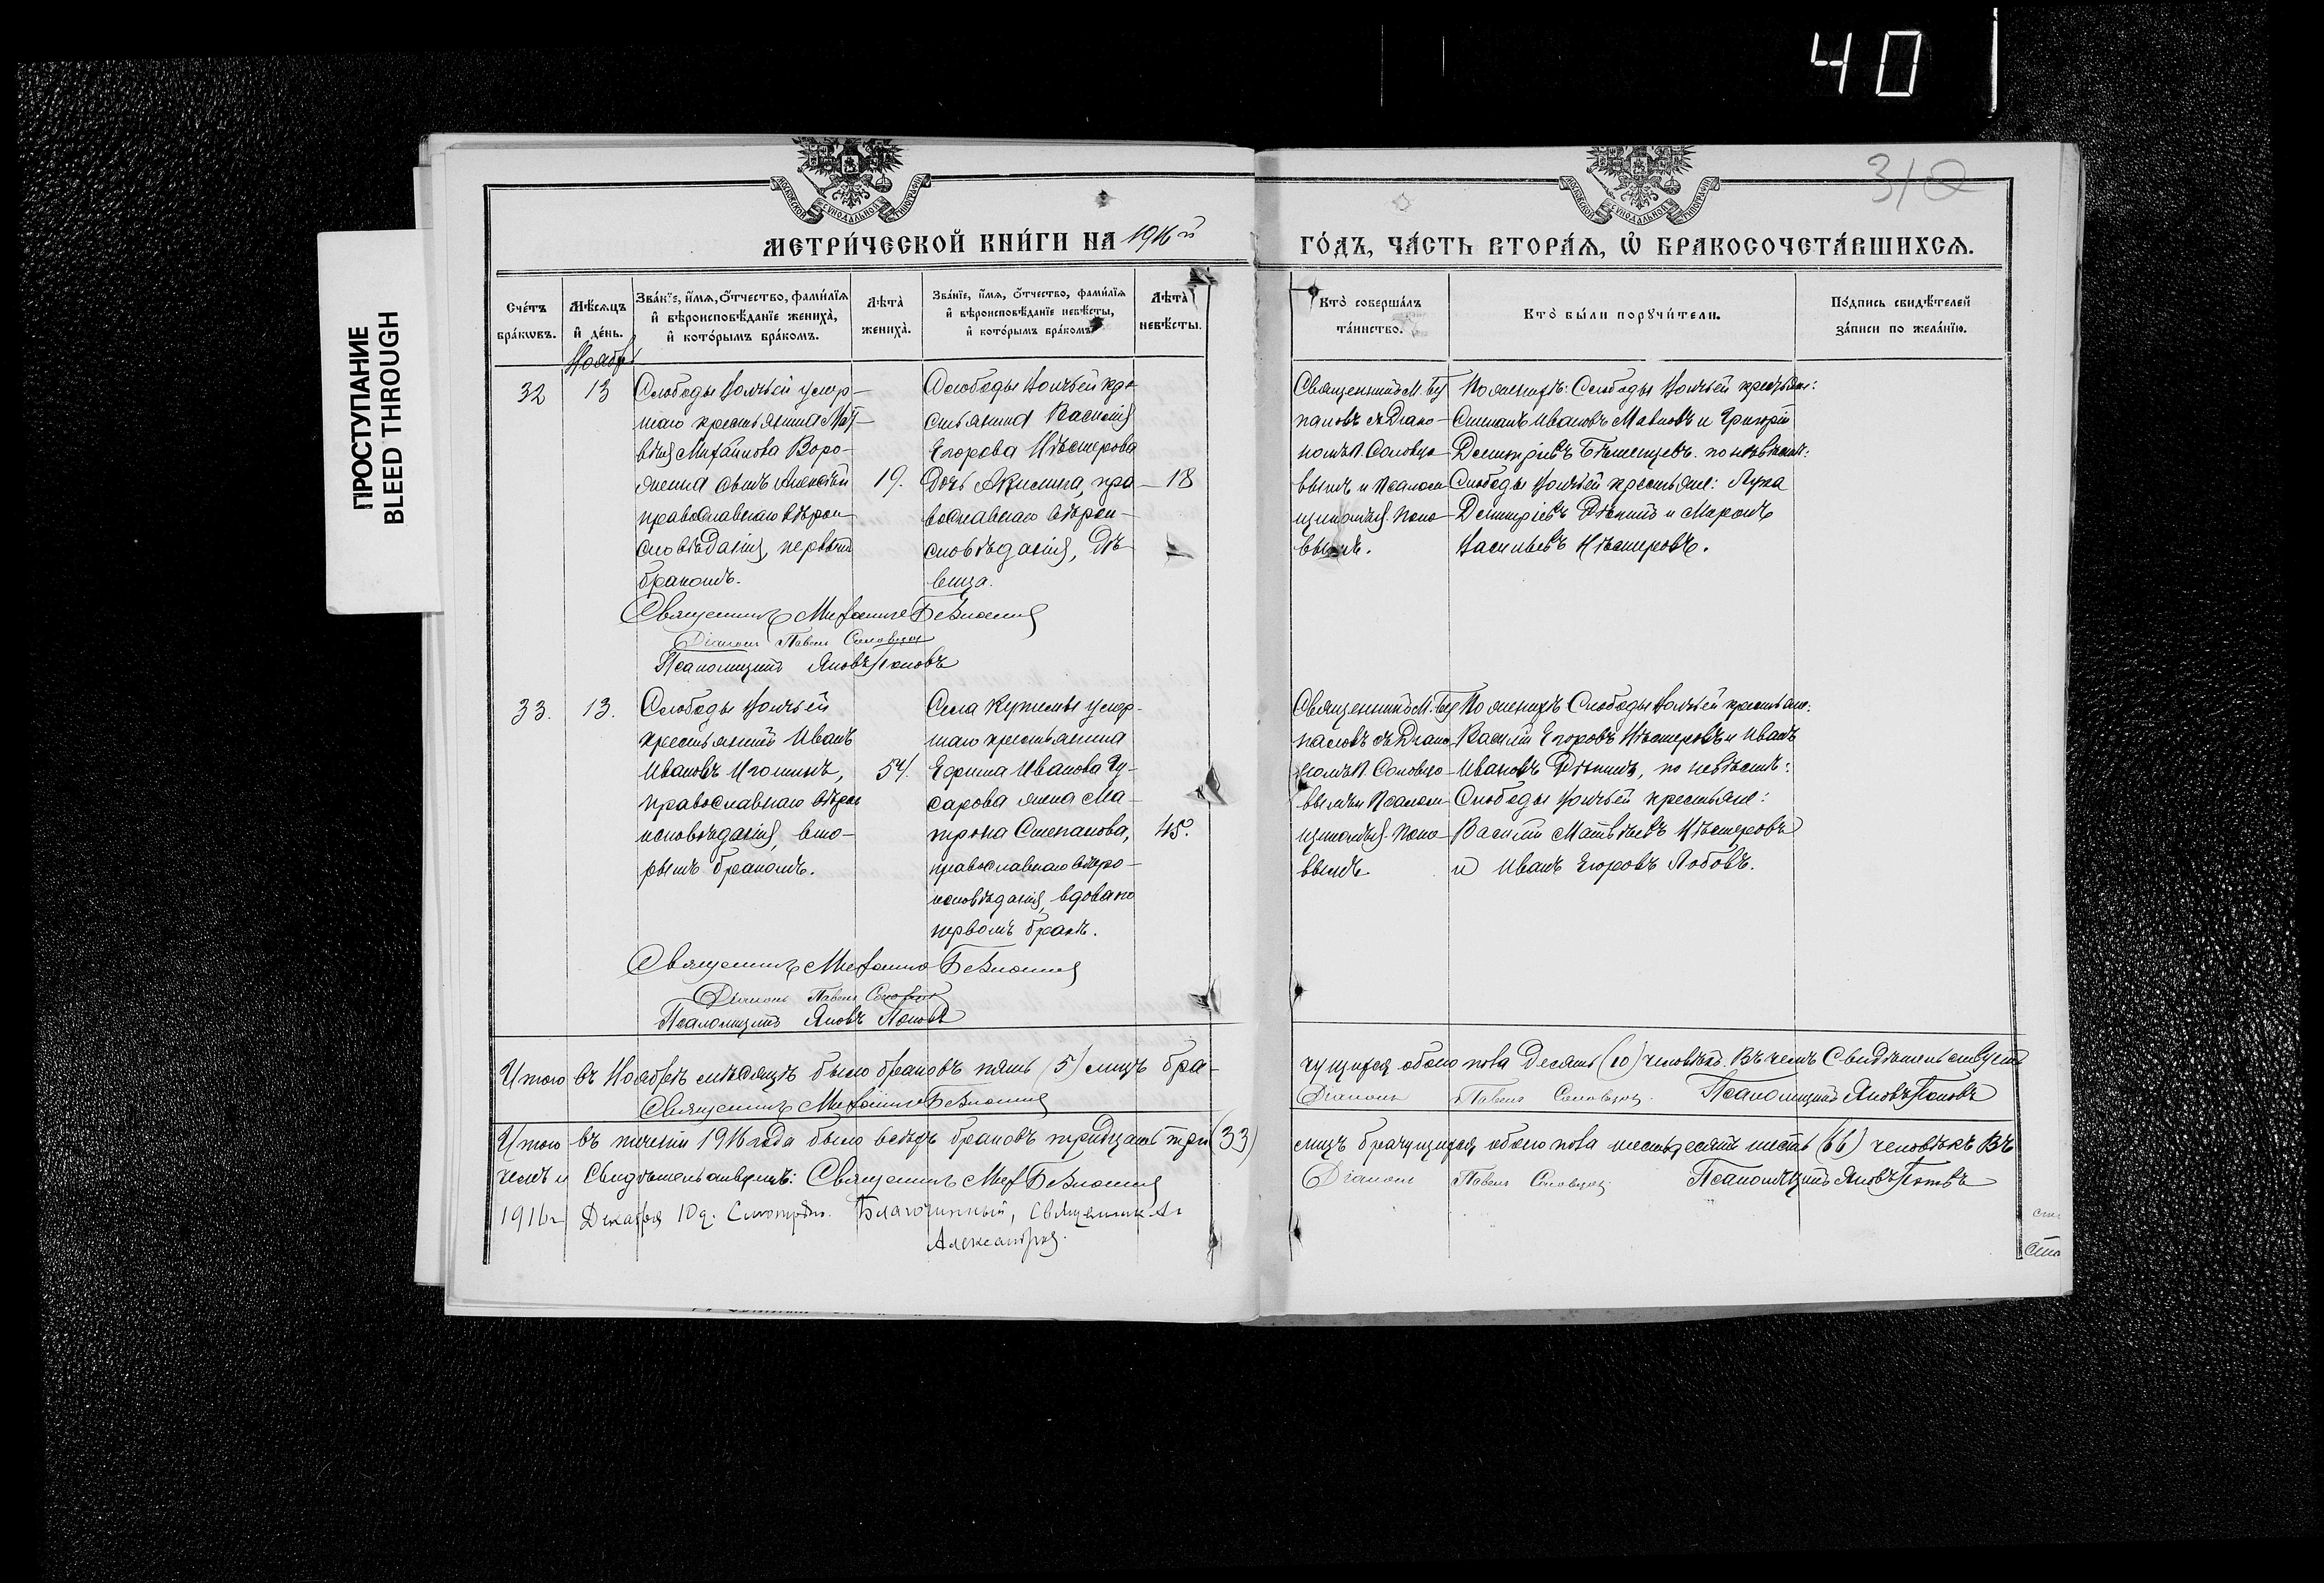 40
310
ПРОСТУПАНИЕ
BLEED THROUGH
МЕТРИ́ЧЕСКОЙ КНИ́ГИ НА 1916й
ГО́ДЪ, ЧА́СТЬ ВТОРА́Я, Ѡ БРАКОСОЧЕТА́ВШИХСЯ.
Сче́тъ бра́кѡвъ.
Мѣ́сяцъ и де́нь.
Зва́нїе, и́мя, ѻ́тчество, фами́лїя и вѣроисповѣ́данїе жениха̀, и кото́рымъ бра́комъ.
Лѣта̀ жениха̀.
Зва́нїе, и́мя, ѻ́тчество, фами́лїя и вѣроисповѣ́данїе невѣ́сты, и кото́рымъ бра́комъ.
Лѣта̀ невѣ́сты.
Кто̀ соверша́лъ та́инство.
Кто̀ бы́ли порꙋчи́тели.
По́дпись свидѣ́телей за́писи по жела́нїю.
Ноябрь
32
13
Слободы Волчьей умер-
шаго крестьянина Мат-
вѣя Михайлова Воро-
жеина сынъ Алексѣй
православнаго вѣрои-
сповѣданія, первымъ
бракомъ.
19.
Слободы Волчьей кре-
стьянина Василія
Егорова Нѣстерова
дочь Акилина, пра-
вославнаго вѣрои-
сповѣданія, дѣ-
вица.
18
Священникъ М.
паловъ съ Діако-
номъ П. Соловцо-
вымъ и Псалом-
щикомъ Я. Попо-
вымъ.
По женихѣ: Слободы Волчьей крестьяне:
Ивановъ и Григорій
Димитріевъ по невѣстѣ:
Слободы Волчьей крестьяне: Лука
Димитріевъ и Миронъ
Васильевъ Нѣстеровъ.
Священникъ
Діаконъ Павелъ Соловцов
Псаломщикъ Яковъ Поповъ
33.
13.
Слободы Волчьей
крестьянинъ Иванъ
Ивановъ Игошинъ,
православнаго вѣро-
исповѣданія, вто-
рымъ бракомъ.
54.
Села умер-
шаго крестьянина
Ефима Иванова Гу-
сарова жена Ма-
трона Степанова,
православнаго вѣро-
исповѣданія, вдова по
первомъ бракѣ.
45.
Священникъ М.
паловъ съ Діако-
номъ П. Соловцо-
вымъ и Псалом-
щикомъ Я. Попо-
вымъ.
По женихѣ Слободы Волчьей крестьяне:
Василій Егоровъ Нѣстеровъ и Иванъ
Ивановъ по невѣстѣ:
Слободы Волчьей крестьяне:
Василій Матвѣевъ Нѣстеровъ
и Иванъ Егоровъ Лобовъ.
Священникъ
Діаконъ Павелъ Соловцов
Псаломщикъ Яковъ Поповъ
Итого въ Ноябрѣ мѣсяцѣ было браковъ пять (5) лицъ бра-
чущихся обоего пола десять (10) человѣкъ. Въ чемъ Свидѣтельствуемъ
Священникъ
Діаконъ Павелъ Соловцов. Псаломщикъ Яковъ Поповъ
Итого въ теченіи 1916 года было всѣхъ браковъ тридцать три (33)
лицъ брачущихся обоего пола шестьдесятъ шесть (66) человѣкъ Въ
чемъ и Свидѣтельствуемъ: Священникъ
Діаконъ Павелъ Соловцов Псаломщикъ Яковъ Поповъ
1916 г. Декабря 10 д. Смотрѣлъ. Благочинный, Священник
Александров.